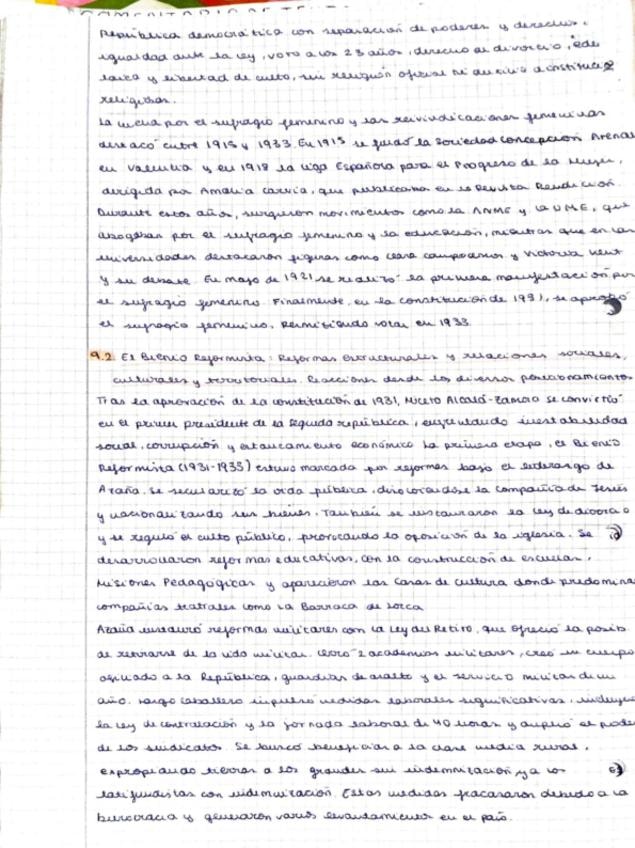 COMENTARIO DE TEXTO
República democrática con separación de poderes y derechos,
igualdad ante la ley, voto a los 23 años, derecho al divorcio,
laica y libertad de culto, sin religión oficial ni
religiosas.
La lucha por el sufragio femenino y las reivindicaciones femeninas
destacó entre 1915 y 1933. En 1915 se fundó la Sociedad Concepción Arenal
en Valencia y en 1918 la Liga Española para el Progreso de la Mujer,
dirigida por Amalia Carvia, que publicaba en la Revista Redención.
Durante estos años, surgieron movimientos como la ANME y la UME, que
abogaban por el sufragio femenino y la educación, mientras que en las
universidades destacaron figuras como Clara Campoamor y Victoria Kent
y su debate. En mayo de 1921 se realizó la primera manifestación por
el sufragio femenino. Finalmente, en la constitución de 1931, se aprobó
el sufragio femenino, permitiendo votar en 1933.
9.2 El Bienio Reformista: Reformas estructurales y relaciones sociales,
culturales y territoriales. Reacciones desde los diversos posicionamientos
Tras la aprovación de la constitución de 1931, Niceto Alcalá-Zamora se convirtió
en el primer presidente de la Segunda república, enfrentando inestabilidad
social, corrupción y estancamiento económico. La primera etapa, el Bienio
Reformista (1931-1933) estuvo marcada por reformas bajo el liderazgo de
Azaña. Se secularizó la vida pública, disolviéndose la Compañía de Jesús
y nacionalizando sus bienes. También se instauraron la ley de divorcio
y se reguló el culto público, provocando la oposición de la iglesia. Se
desarrollaron reformas educativas, con la construcción de escuelas,
Misiones Pedagógicas y aparecieron las Casas de cultura donde predomina
compañías teatrales como La Barraca de Lorca
Azaña instauró reformas militares con la Ley del Retiro, que ofreció la posib.
de retirarse de la vida militar. Cerró 2 academias militares, creó un cuerpo
afiliado a la República, guardias de asalto y el servicio militar de un
año. Largo Caballero impulsó medidas laborales significativas, incluyendo
la ley de contratación y la jornada laboral de 40 horas y amplió el poder
de los sindicatos. Se buscó beneficiar a la clase media rural,
expropiando tierras a los grandes sin indemnización, y a los
latifundistas con indemnización. Estas medidas fracasaron debido a la
burocracia y generaron varios levantamientos en el país.